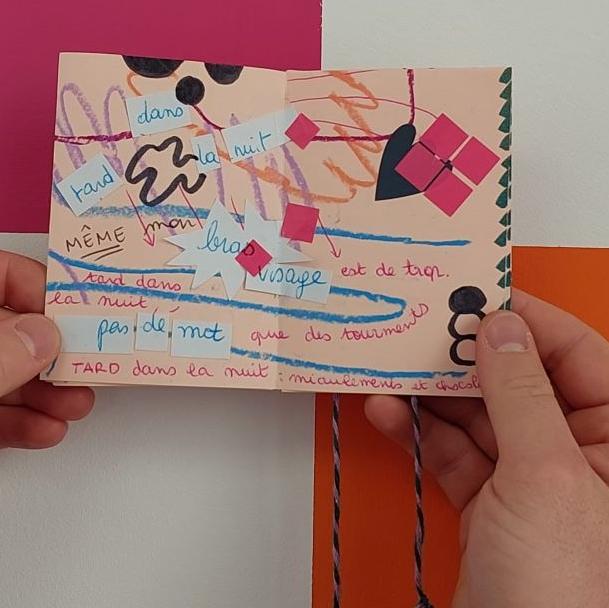 dans
tard la nuit
MÊME mon bras visage est de trop.
tard dans
la nuit,
pas de mot que des tourments
TARD dans la nuit : miaulements et